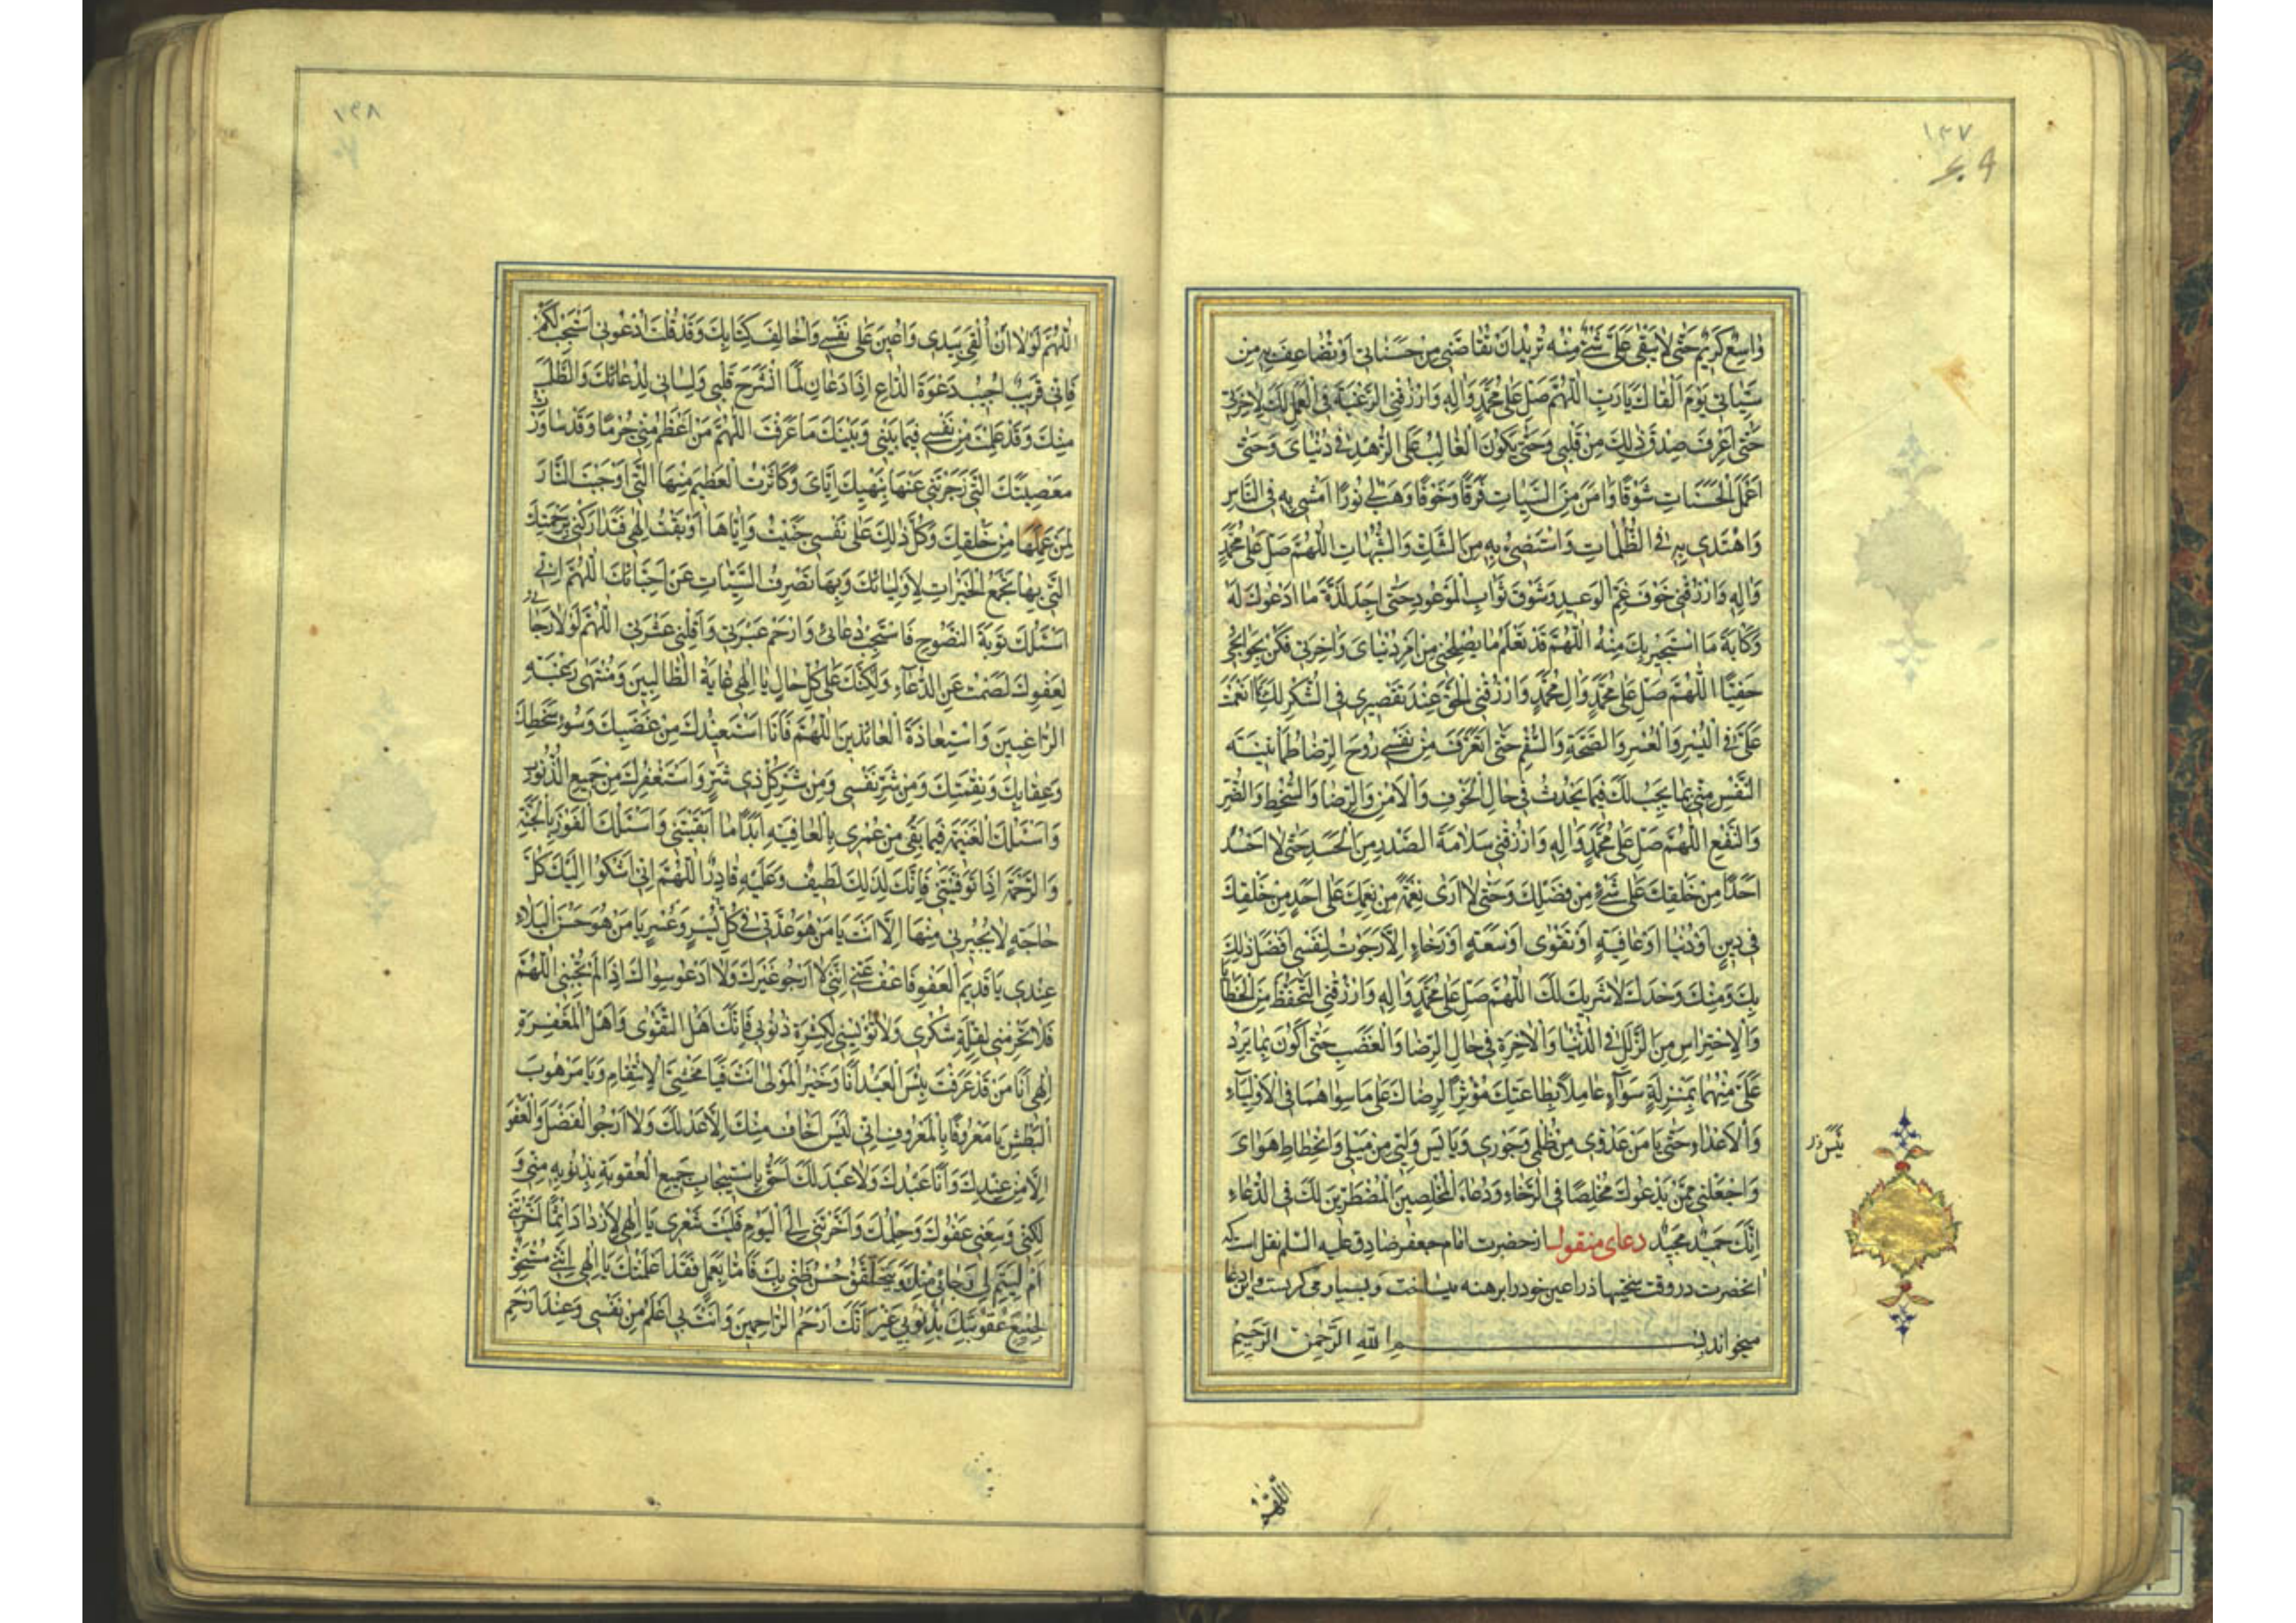 ١٣٧
وٰاسِعٌ كَرٖيمٌ حَتّٰى لاٰ يَبْقٰى عَلَىَّ شَىْءٌ مِنْهُ تُرٖيدُ اَنْ تُقٰاصَّنٖى بِهِ مِنْ حَسَنٰاتٖى اَوْ تُضٰاعِفَ بِهِ مِنْ
سَيِّئٰاتٖى يَوْمَ اَلْقٰاكَ يٰارَبِّ اَللّٰهُمَّ صَلِّ عَلٰى مُحَمَّدٍ وَاٰلِهِ وَارْزُقْنِى الرَّغْبَةَ فِى الْعَمَلِ لَكَ لِاٰخِرَتٖى
حَتّٰى اَعْرِفَ صِدْقَ ذٰلِكَ مِنْ قَلْبٖى وَحَتّٰى يَكُونَ الْغٰالِبُ عَلَىَّ الزُّهْدَ فٖى دُنْيٰاىَ وَحَتّٰى
اَعْمَلَ الْحَسَنٰاتِ شَوْقًا وَاٰمَنَ مِنَ السَّيِّئٰاتِ فَرَقًا وَخَوْفًا وَهَبْ لٖى نُورًا اَمْشٖى بِهِ فِى النّٰاسِ
وَاَهْتَدٖى بِهِ فِى الظُّلُمٰاتِ وَاَسْتَضٖىءُ بِهِ مِنَ الشَّكِّ وَالشُّبُهٰاتِ اَللّٰهُمَّ صَلِّ عَلٰى مُحَمَّدٍ
وَاٰلِهِ وَارْزُقْنٖى خَوْفَ غَمِّ الْوَعٖيدِ وَشَوْقَ ثَوٰابِ الْمَوْعُودِ حَتّٰى اَجِدَ لَذَّةَ مٰا اَدْعُوكَ لَهُ
وَكَاٰبَةَ مٰا اَسْتَجٖيرُ بِكَ مِنْهُ اَللّٰهُمَّ قَدْ تَعْلَمُ مٰا يُصْلِحُنٖى مِنْ اَمْرِ دُنْيٰاىَ وَاٰخِرَتٖى فَكُنْ بِحَوٰائِجٖى
حَفِيًّا اَللّٰهُمَّ صَلِّ عَلٰى مُحَمَّدٍ وَاٰلِ مُحَمَّدٍ وَارْزُقْنِى الْحَقَّ عِنْدَ تَقْصٖيرٖى فِى الشُّكْرِ لَكَ بِمٰا اَنْعَمْتَ
عَلَىَّ فِى الْيُسْرِ وَالْعُسْرِ وَالصِّحَّةِ وَالسُّقْمِ حَتّٰى اَتَعَرَّفَ مِنْ نَفْسٖى رَوْحَ الرِّضٰا وَطُمَأْنٖينَةَ
النَّفْسِ مِنّٖى بِمٰا يَجِبُ لَكَ فٖيمٰا يَحْدُثُ فٖى حٰالِ الْخَوْفِ وَالْاَمْنِ وَالرِّضٰا وَالسُّخْطِ وَالضَّرِّ
وَالنَّفْعِ اَللّٰهُمَّ صَلِّ عَلٰى مُحَمَّدٍ وَاٰلِهِ وَارْزُقْنٖى سَلاٰمَةَ الصَّدْرِ مِنَ الْحَسَدِ حَتّٰى لاٰ اَحْسُدَ
اَحَدًا مِنْ خَلْقِكَ عَلٰى شَىْءٍ مِنْ فَضْلِكَ وَحَتّٰى لاٰ اَرٰى نِعْمَةً مِنْ نِعَمِكَ عَلٰى اَحَدٍ مِنْ خَلْقِكَ
فٖى دٖينٍ اَوْ دُنْيٰا اَوْ عٰافِيَةٍ اَوْ تَقْوٰى اَوْ سَعَةٍ اَوْ رَخٰاءٍ اِلاّٰ رَجَوْتُ لِنَفْسٖى اَفْضَلَ ذٰلِكَ
بِكَ وَمِنْكَ وَحْدَكَ لاٰ شَرٖيكَ لَكَ اَللّٰهُمَّ صَلِّ عَلٰى مُحَمَّدٍ وَاٰلِهِ وَارْزُقْنِى التَّحَفُّظَ مِنَ الْخَطٰايٰا
وَالْاِحْتِرٰاسَ مِنَ الزَّلَلِ فِى الدُّنْيٰا وَالْاٰخِرَةِ فٖى حٰالِ الرِّضٰا وَالْغَضَبِ حَتّٰى اَكُونَ بِمٰا يَرِدُ
عَلَىَّ مِنْهُمٰا بِمَنْزِلَةٍ سَوٰاءٍ عٰامِلاً بِطٰاعَتِكَ مُؤْثِرًا لِرِضٰاكَ عَلٰى مٰا سِوٰاهُمٰا فِى الْاَوْلِيٰاءِ
وَالْاَعْدٰاءِ حَتّٰى يٰامَنَ عَدُوّٖى مِنْ ظُلْمٖى وَجَوْرٖى وَيَاْيَسَ وَلِيّٖى مِنْ مَيْلٖى وَانْحِطٰاطِ هَوٰاىَ
وَاجْعَلْنٖى مِمَّنْ يَدْعُوكَ مُخْلِصًا فِى الرَّخٰاءِ وَدُعٰاءَ الْمُخْلِصٖينَ الْمُضْطَرّٖينَ لَكَ فِى الدُّعٰاءِ
اِنَّكَ حَمٖيدٌ مَجٖيدٌ دعاى منقول از حضرت امام جعفر صادق عليه السلم نقل است كه
انحضرت در وقت سختيها ذراعين خود را برهنه ميساخت و بسيار مى كريست و اين دعا
ميخواند بِسْمِ اللّٰهِ الرَّحْمٰنِ الرَّحٖيمِ
اَللّٰهُمَّ
١٣٨
اَللّٰهُمَّ لَوْلاٰ اَنْ اُلْقِىَ بِيَدٖى وَاُعٖينَ عَلٰى نَفْسٖى وَاُخٰالِفَ كِتٰابَكَ وَقَدْ قُلْتَ اُدْعُونٖى اَسْتَجِبْ لَكُمْ
فَاِنّٖى قَرٖيبٌ اُجٖيبُ دَعْوَةَ الدّٰاعِ اِذٰا دَعٰانِ لَمَا انْشَرَحَ قَلْبٖى وَلِسٰانٖى لِدُعٰائِكَ وَالطَّلَبِ
مِنْكَ وَقَدْ عَلِمْتُ مِنْ نَفْسٖى فٖيمٰا بَيْنٖى وَبَيْنَكَ مٰا عَرَفْتُ اَللّٰهُمَّ مَنْ اَعْظَمُ مِنّٖى جُرْمًا وَقَدْ سٰاوَرْتُ
مَعْصِيَتَكَ الَّتٖى زَجَرْتَنٖى عَنْهٰا بِنَهْيِكَ اِيّٰاىَ وَكٰاثَرْتُ الْعَظٖيمَ مِنْهٰا الَّتٖى اَوْجَبْتَ النّٰارَ
لِمَنْ عَمِلَهٰا مِنْ خَلْقِكَ وَكُلَّ ذٰلِكَ عَلٰى نَفْسٖى جَنَيْتُ وَاِيّٰاهٰا اَوْبَقْتُ اِلٰهٖى فَتَدٰارَكْنٖى بِرَحْمَتِكَ
الَّتٖى بِهٰا تَجْمَعُ الْخَيْرٰاتِ لِاَوْلِيٰائِكَ وَبِهٰا تَصْرِفُ السَّيِّئٰاتِ عَنْ اَحِبّٰائِكَ اَللّٰهُمَّ اِنّٖى
اَسْئَلُكَ تَوْبَةَ النَّصُوحِ فَاسْتَجِبْ دُعٰائٖى وَارْحَمْ عَبْرَتٖى وَاَقِلْنٖى عَثْرَتٖى اَللّٰهُمَّ لَوْلاٰ رَجٰائٖى
لِعَفْوِكَ لَصَمَتُّ عَنِ الدُّعٰاءِ وَلٰكِنَّكَ عَلٰى كُلِّ حٰالٍ يٰا اِلٰهٖى غٰايَةُ الطّٰالِبٖينَ وَمُنْتَهٰى رَغْبَةِ
الرّٰاغِبٖينَ وَاسْتِعٰاذَةُ الْعٰائِذٖينَ اَللّٰهُمَّ فَاَنَا اَسْتَعٖيذُكَ مِنْ غَضَبِكَ وَسُوءِ سَخَطِكَ
وَعِقٰابِكَ وَنِقْمَتِكَ وَمِنْ شَرِّ نَفْسٖى وَمِنْ شَرِّ كُلِّ ذٖى شَرٍّ وَاَسْتَغْفِرُكَ مِنْ جَمٖيعِ الذُّنُوبِ
وَاَسْئَلُكَ الْغَنٖيمَةَ فٖيمٰا بَقِىَ مِنْ عُمْرٖى بِالْعٰافِيَةِ اَبَدًا مٰا اَبْقَيْتَنٖى وَاَسْئَلُكَ الْفَوْزَ بِالْجَنَّةِ
وَالرَّحْمَةَ اِذٰا تَوَفَّيْتَنٖى فَاِنَّكَ لِذٰلِكَ لَطٖيفٌ وَعَلَيْهِ قٰادِرٌ اَللّٰهُمَّ اِنّٖى اَشْكُوا اِلَيْكَ كُلَّ
حٰاجَةٍ لاٰ يُجٖيرُنٖى مِنْهٰا اِلاّٰ اَنْتَ يٰا مَنْ هُوَ عُدَّتٖى فٖى كُلِّ يُسْرٍ وَعُسْرٍ يٰا مَنْ هُوَ حَسَنُ الْبَلاٰءِ
عِنْدٖى يٰا قَدٖيمَ الْعَفْوِ فَاعْفُ عَنّٖى اِنَّنٖى لاٰ اَرْجُو غَيْرَكَ وَلاٰ اَدْعُو سِوٰاكَ اِذٰا لَمْ تُجِبْنٖى اَللّٰهُمَّ
فَلاٰ تَحْرِمْنٖى لِقِلَّةِ شُكْرٖى وَلاٰ تُؤْيِسْنٖى لِكَثْرَةِ ذُنُوبٖى فَاِنَّكَ اَهْلُ التَّقْوٰى وَاَهْلُ الْمَغْفِرَةِ
اِلٰهٖى اَنَا مَنْ قَدْ عَرَفْتَ بِئْسَ الْعَبْدُ اَنَا وَخَيْرُ الْمَوْلٰى اَنْتَ فَيٰا مَخْشِىَّ الْاِنْتِقٰامِ وَيٰا مَرْهُوبَ
الْبَطْشِ يٰا مَعْرُوفًا بِالْمَعْرُوفِ اِنّٖى لَيْسَ اَخٰافُ مِنْكَ اِلاّٰ عَدْلَكَ وَلاٰ اَرْجُو الْفَضْلَ وَالْعَفْوَ
اِلاّٰ مِنْ عِنْدِكَ وَاَنَا عَبْدُكَ وَلاٰ عَبْدَ لَكَ اَحَقُّ بِاسْتٖيجٰابِ جَمٖيعِ الْعُقُوبَةِ بِذُنُوبِهِ مِنّٖى وَ
لٰكِنّٖى وَسِعَنٖى عَفْوُكَ وَحِلْمُكَ وَاَخَّرْتَنٖى اِلَى الْيَوْمِ فَلَيْتَ شِعْرٖى يٰا اِلٰهٖى لِاَزْدٰادَ اِثْمًا اَخَّرْتَنٖى
اَمْ لِيَتِمَّ لٖى رَجٰائٖى مِنْكَ وَيَتَحَقَّقَ حُسْنُ ظَنّٖى بِكَ فَاَمّٰا بِعَمَلٖى فَقَدْ اَعْلَمْتُكَ يٰا اِلٰهٖى اِنَّنٖى مُسْتَحِقٌّ
لِجَمٖيعِ عُقُوبَتِكَ بِذُنُوبٖى غَيْرَ اَنَّكَ اَرْحَمُ الرّٰاحِمٖينَ وَاَنْتَ بٖى اَعْلَمُ مِنْ نَفْسٖى وَعِنْدَ اَرْحَمِ